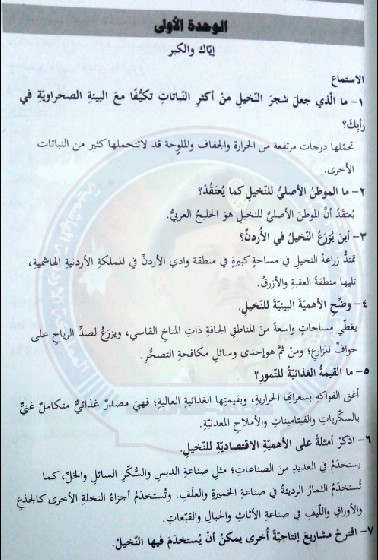 الوحدة الأولى
إيّاك والكبر
الاستماع
١- ما الّذي جعل شجرَ النّخيلِ منْ أكثرِ النّباتاتِ تكيُّفًا معَ البيئةِ الصحراويّةِ في
رأيِكَ؟
تحمّلها درجات مرتفعة من الحرارة والجفاف والملوحة قد لا تتحملها كثير من النباتات
الأخرى.
٢- ما الموطنُ الأصليُّ للنّخيلِ كما يُعتقَدُ؟
يُعتقدُ أنّ الموطن الأصليّ للنخيل هو الخليج العربيّ.
٣- أينَ يُزرَعُ النّخيلُ في الأردنّ؟
تمتدُّ زراعة النخيل في مساحةٍ كبيرةٍ في منطقة وادي الأردنّ في المملكةِ الأردنيةِ الهاشميةِ،
تليها منطقة العقبة والأزرق.
٤- وضّحِ الأهميّةَ البيئيّةَ للنّخيلِ.
يغطي مساحاتٍ واسعة منَ المناطقِ الجافةِ ذاتِ المناخِ القاسي، ويزرعُ لصدِّ الرياحِ على
حوافِّ المزارعِ؛ ومنْ ثمَّ هو إحدى وسائل مكافحةِ التصحُّرِ.
٥- ما القيمةُ الغذائيّةُ للتّمورِ؟
أغنى الفواكه بسعراتها الحراريةِ، وبقيمتِها الغذائيةِ العاليةِ؛ فهيَ مصدرٌ غذائيٌّ متكاملٌ غنيٌّ
بالسكّريات والفيتامينات والأملاح المعدنيّة.
٦- اذكرْ أمثلةً على الأهميّةِ الاقتصاديّةِ للنّخيلِ.
يستخدَمُ في العديدِ من الصناعاتِ؛ مثلِ صناعةِ الدبسِ والسُّكّرِ السائلِ والخلِّ، كما
تُستخدَمُ الثمارُ الرديئةُ في صناعةِ الخميرةِ والعلَفِ. وتُستخدَمُ أجزاءُ النخلةِ الأخرى كالجذعِ
والأوراقِ واللّيفِ في صناعةِ الأثاثِ والحبالِ والقبّعاتِ.
٧- اقترحْ مشاريعَ إنتاجيّةً أخرى يمكنُ أنْ يُستخدَمَ فيها النّخيلُ.